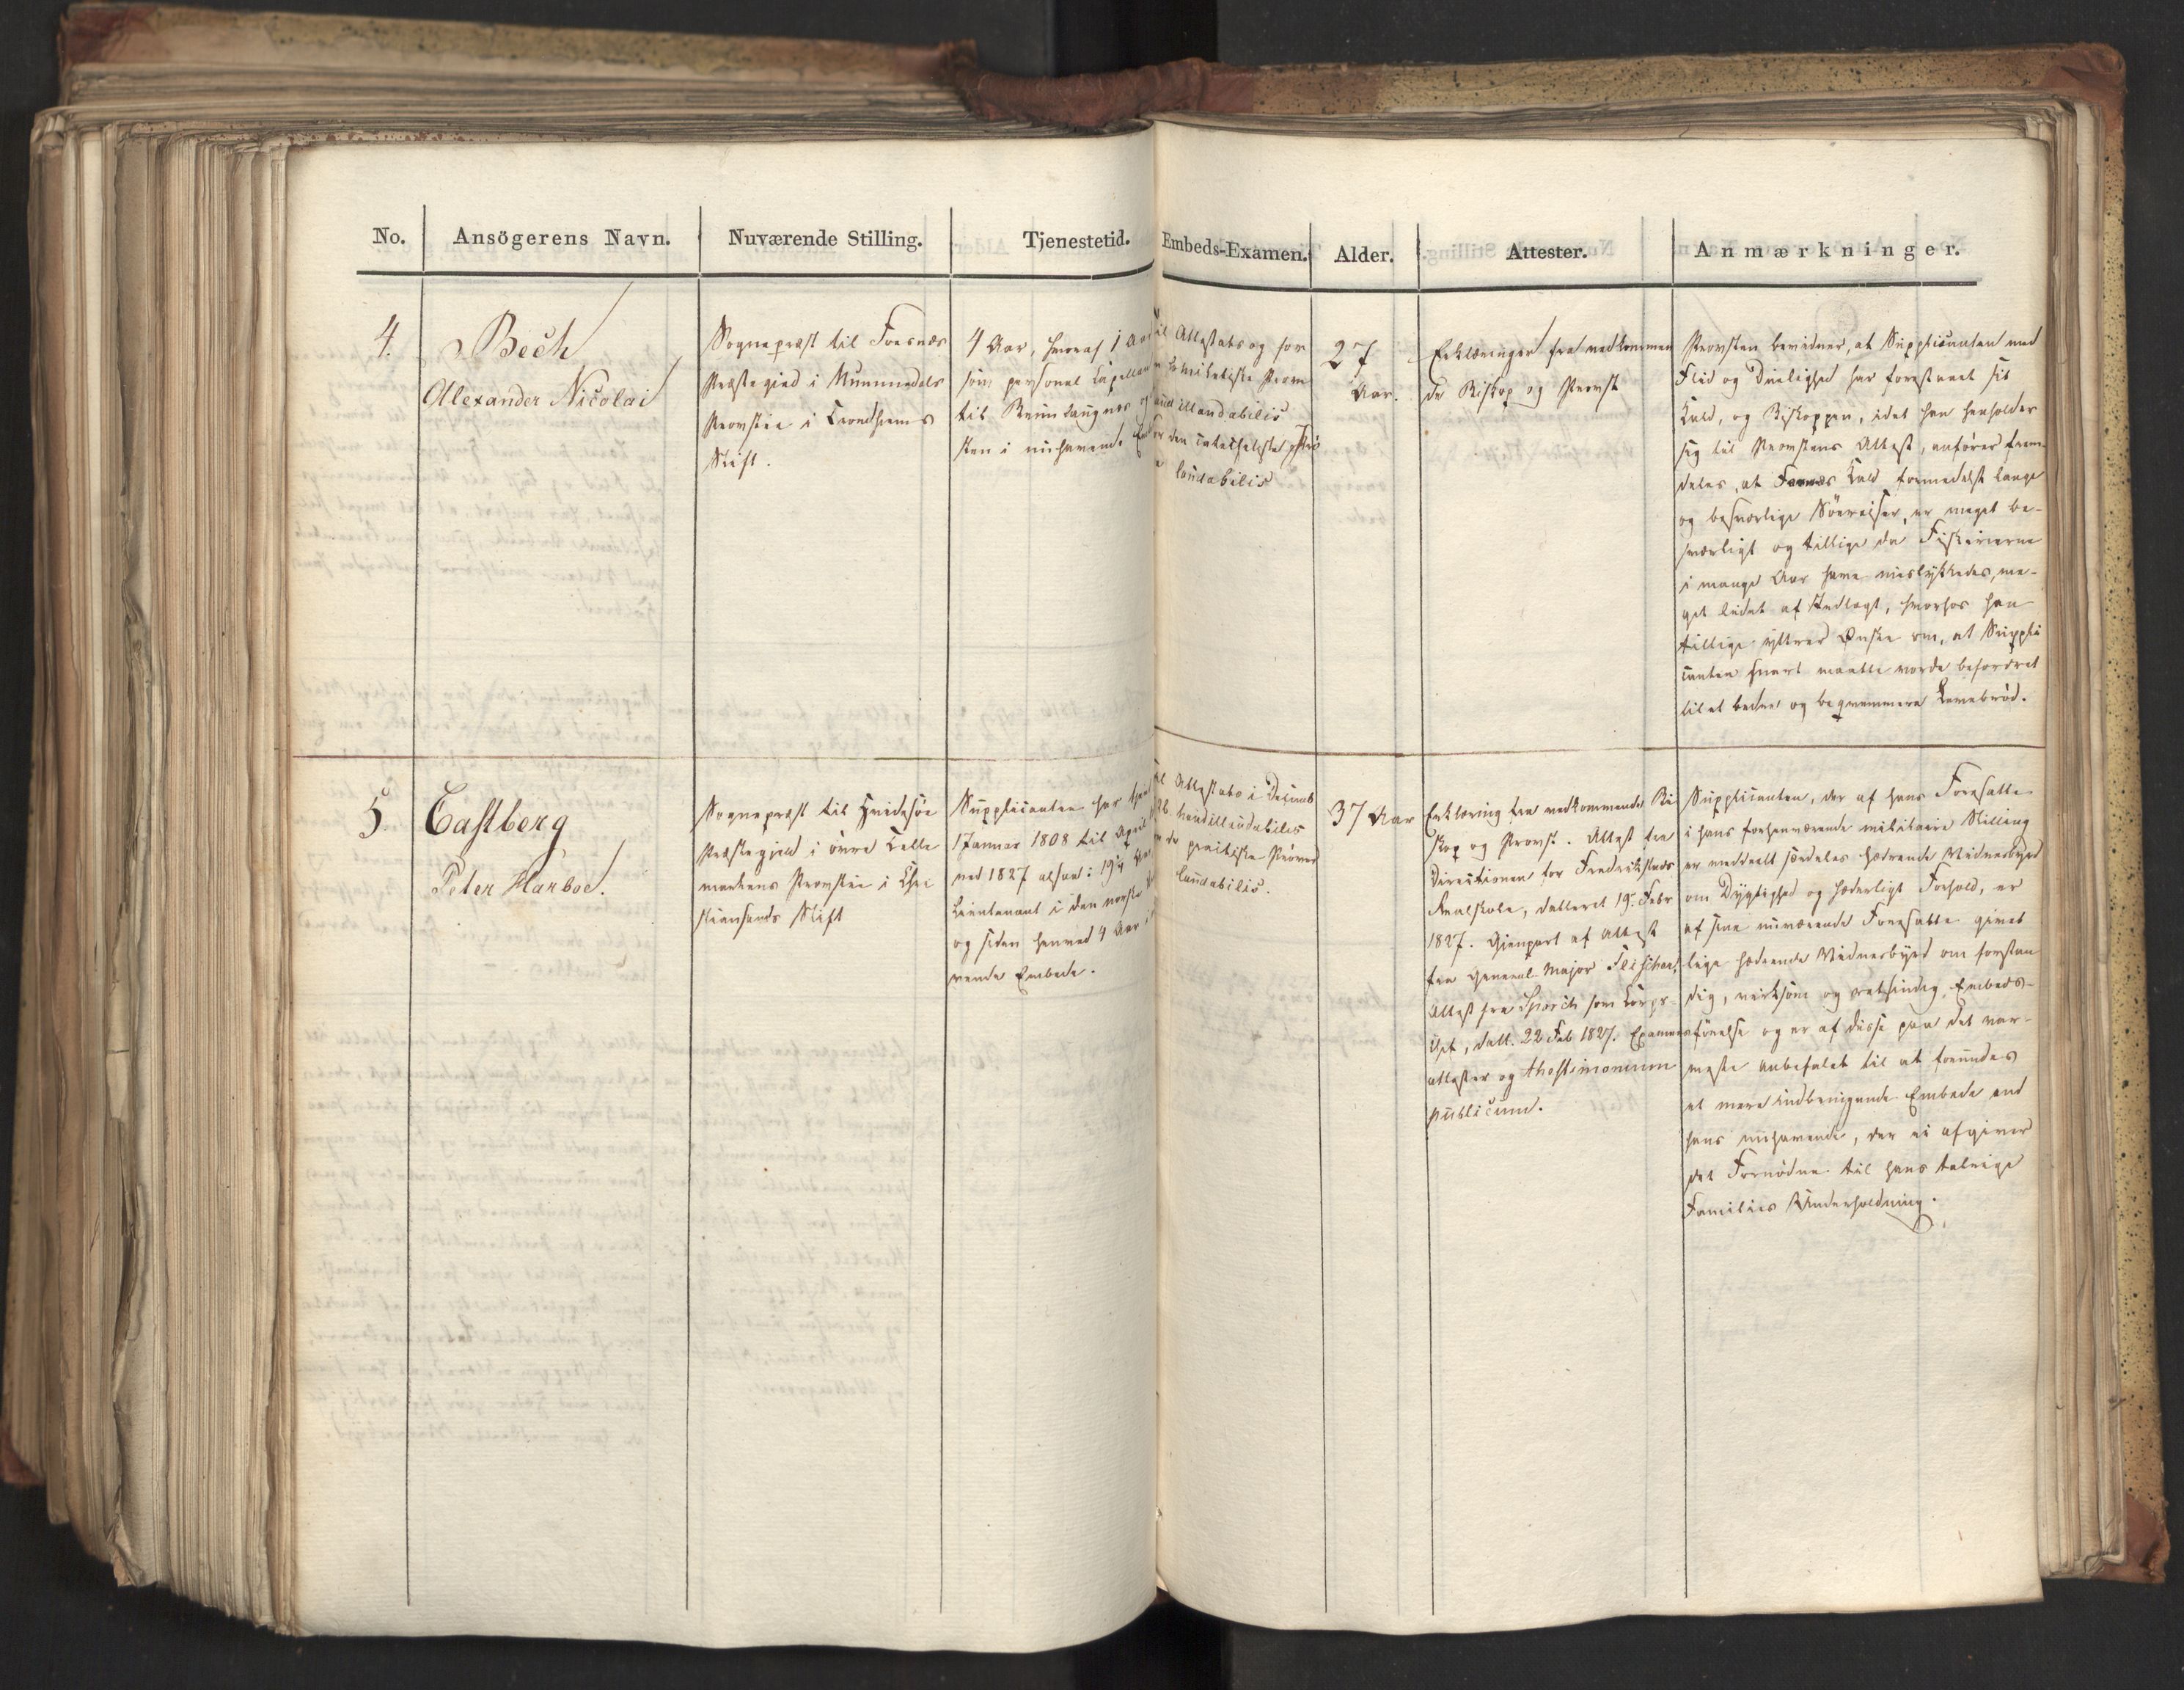 No.
Ansögerens Navn.
Nuværende Stilling.
Tjenestetid.
Embeds-Examen.
Alder.
Attester.
Anmærkninger.
4.
Bech
Alexander Nicolai
Sognepræst til Foesnæs
Præstegield i Nummedals
Provstie i Trondhjems
Stift.
4 Aar, hvoraf 1 Aar
som personel Capellan
til
sten i nuhavende
til Attestats og for
n homiletiske Prøve
haud illaudabilis
for den catechetiske Prø
laudabilis
27
Aar.
Erklæringer fra vedkommen
de Biskop og Provst
Provsten bevidner, at Supplicanten med
Flid og Duelighed har forestaaet sit
Kald, og Biskoppen, idet han henholder
sig til Provstens Attest, anfører frem-
deles, at Foesnæs Kald formedelst lange
og besværlige Söereiser, er meget be-
sværligt og tillige da Fiskerierne
i mange Aar have mislykkedes, me-
get lidet af Indtægt, hvorhos han
tillige yttrer Ønske om, at Suppli
canten snart maatte vorde befordret
til et bedre og beqvemmere Levebrød.
5.
Castberg
Peter Harboe.
Sognepræst til Hvidesøe
Præstegjeld i övre Telle
markens Provstie i Chri
stiansands Stift
Supplicanten har
1 Januar 1808 til April
ned 1827 altsaa: 19¼
Lieutenant i den norske
og siden henved 4 Aar i
rende Embede.
til Attestats i Decemb
haud illaudabilis
for de practiske Prøver
laudabilis.
37 Aar
Erklæring fra vedkommende Bi
skop og Provst. Attest fra
Directionen for Fredrikstads
Realskole, datteret 19. Febr
1827. Gienpart af Attest
fra General Major Fleischer,
Attest fra Sporck som Corps
chef, datt. 22 Feb 1827. Examens
attester og Thestimonium
publicum.
Supplicanten, der af hans Foresatte
i hans forhenværende militaire Stilling
er meddeelt særdeles hædrende Vidnesbyrd
om Dygtighed og hæderligt Forhold, er
af sine nuværende Foresatte givet
lige hædrende Vidnesbyrd om forstan
dig, virksom og retsindig Embeds-
førelse og er af disse paa det var-
meste anbefalet til at forundes
et mere indbringende Embede end
hans nuhavende, der ei afgiver
det Fornødne til hans talrige
Families Underholdning.